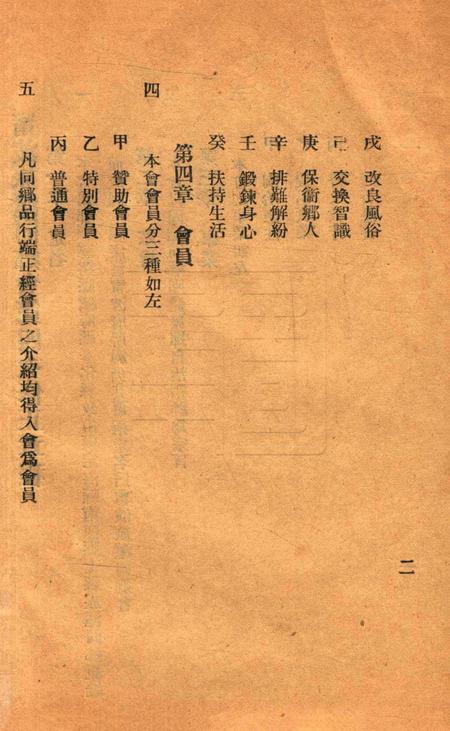 二
戊 改良風俗
己 交換智識
庚 保衛鄉人
辛 排難解紛
壬 鍛鍊身心
癸 扶持生活
第四章 會員
四 本會會員分三種如左
甲 贊助會員
乙 特別會員
丙 普通會員
五 凡同鄉品行端正經會員之介紹均得入會爲會員